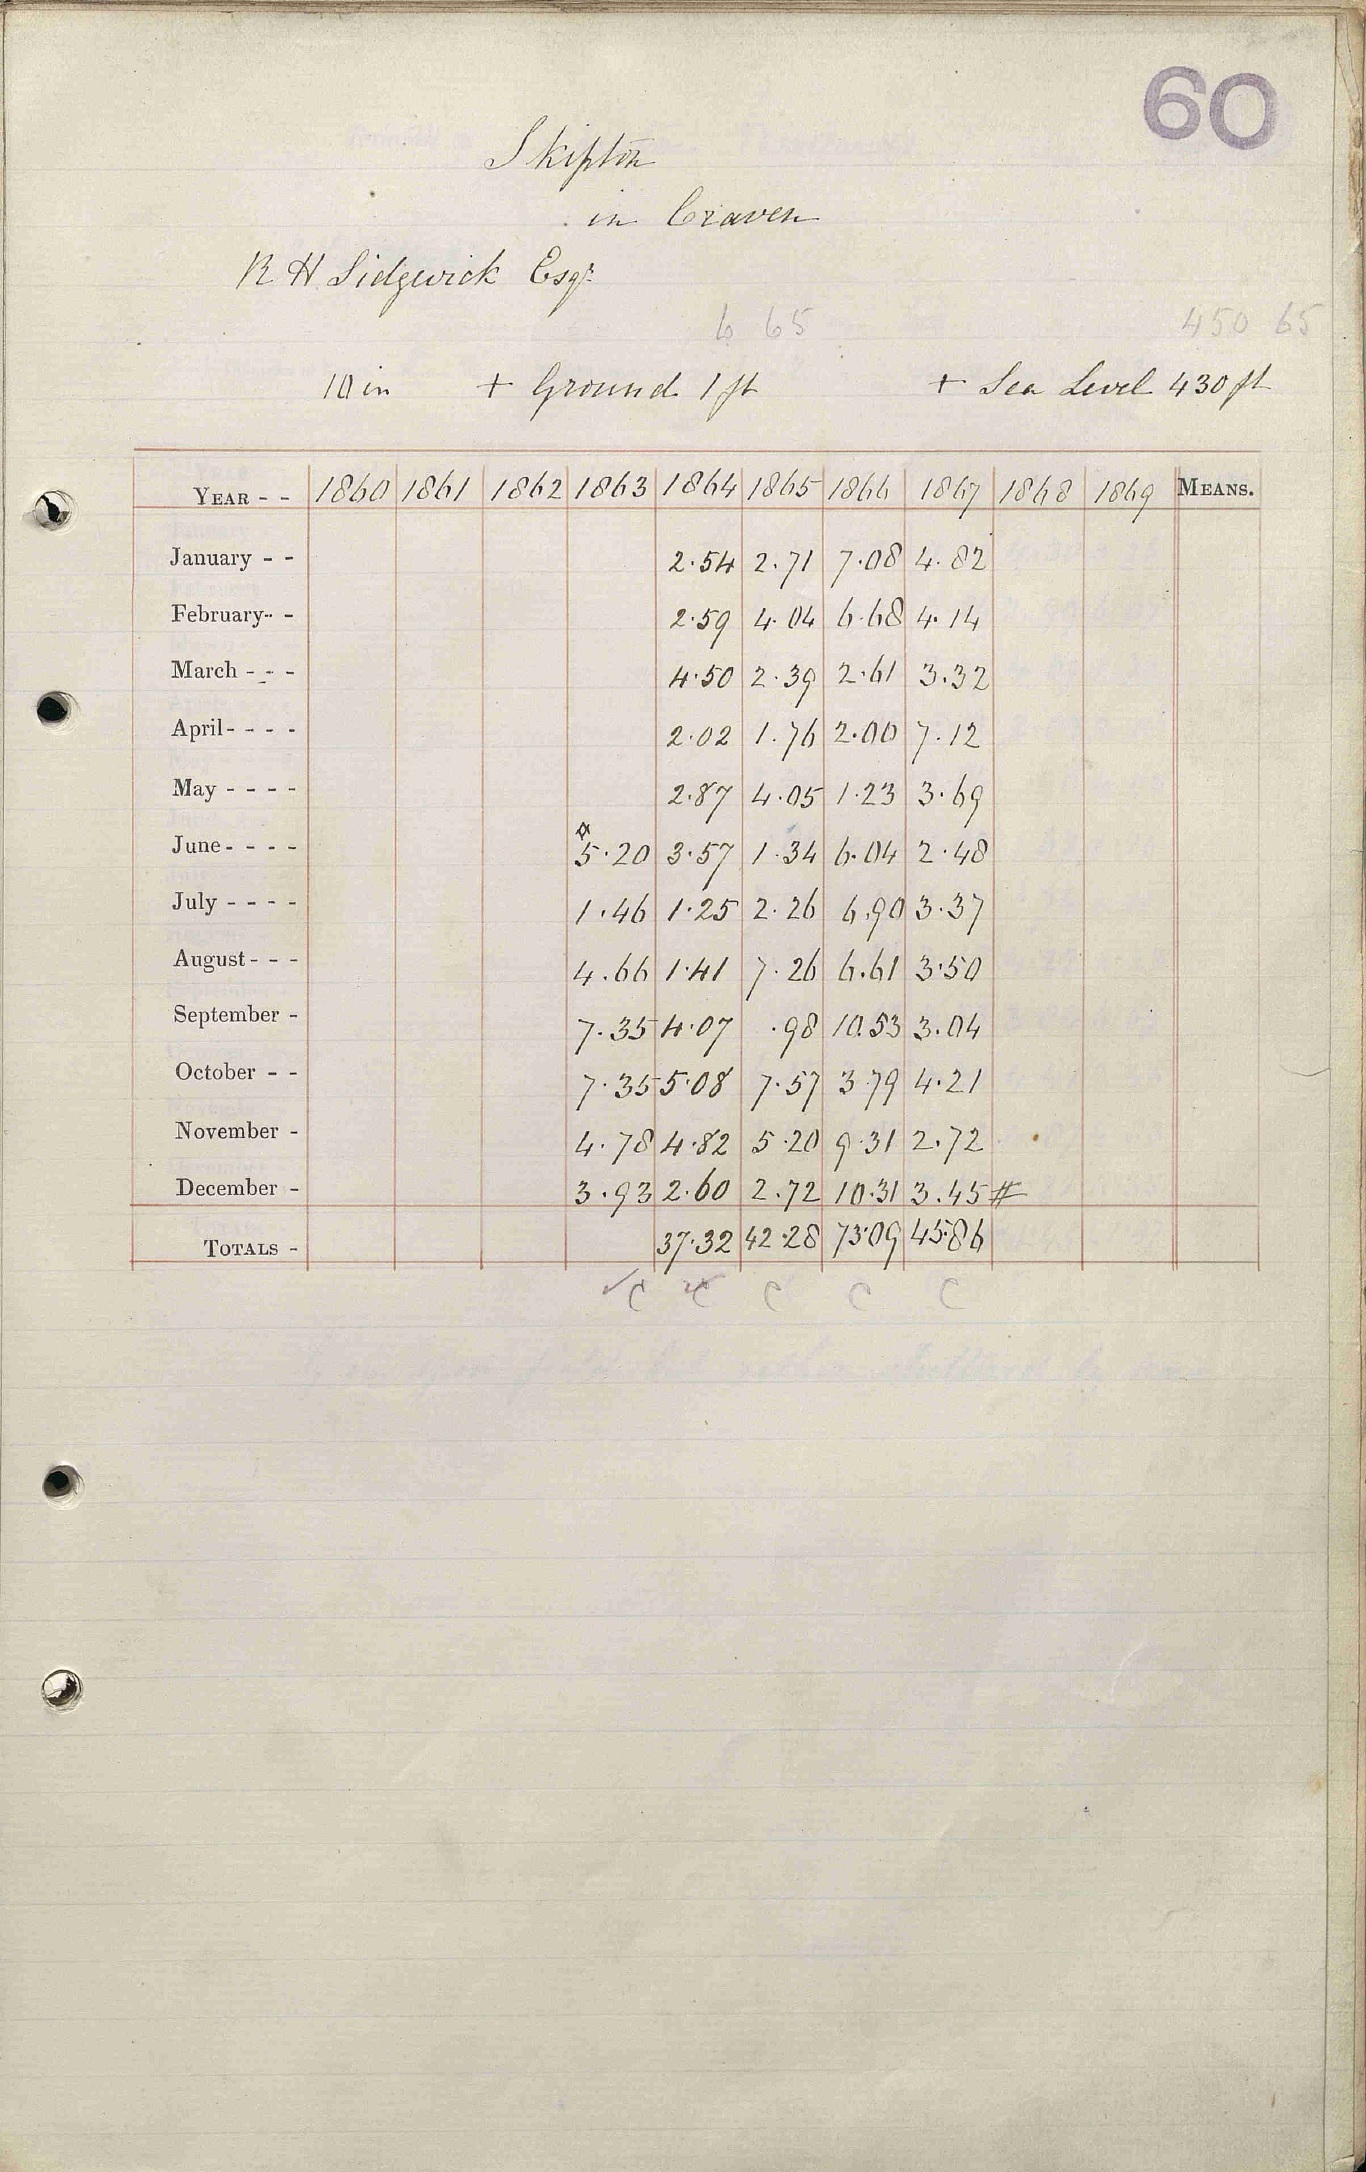 60
Skipton
in Craven
R H Sidgwick Esqr
6 65 450 65
10 in + Ground 1 ft + Sea Level 430 ft
YEAR - - 1860 1861 1862 1863 1864 1865 1866 1867 1868 1869 MEANS.
January - - 2.54 2.71 7.08 4.82
February - - 2.59 4.04 6.68 4.14
March - - - 4.50 2.39 2.61 3.32
April - - - - 2.02 1.76 2.00 7.12
May - - - - 2.87 4.05 1.23 3.69
June - - - - 5.20 3.57 1.34 6.04 2.48
July - - - - 1.46 1.25 2.26 6.90 3.37
August - - - 4.66 1.41 7.26 6.61 3.50
September - 7.35 4.07 .98 10.53 3.04
October - - 7.35 5.08 7.57 3.79 4.21
November - 4.78 4.82 5.20 9.31 2.72
December - 3.93 2.60 2.72 10.31 3.45 #
TOTALS - 37.32 42.28 73.09 45.86
✓ C C C C C